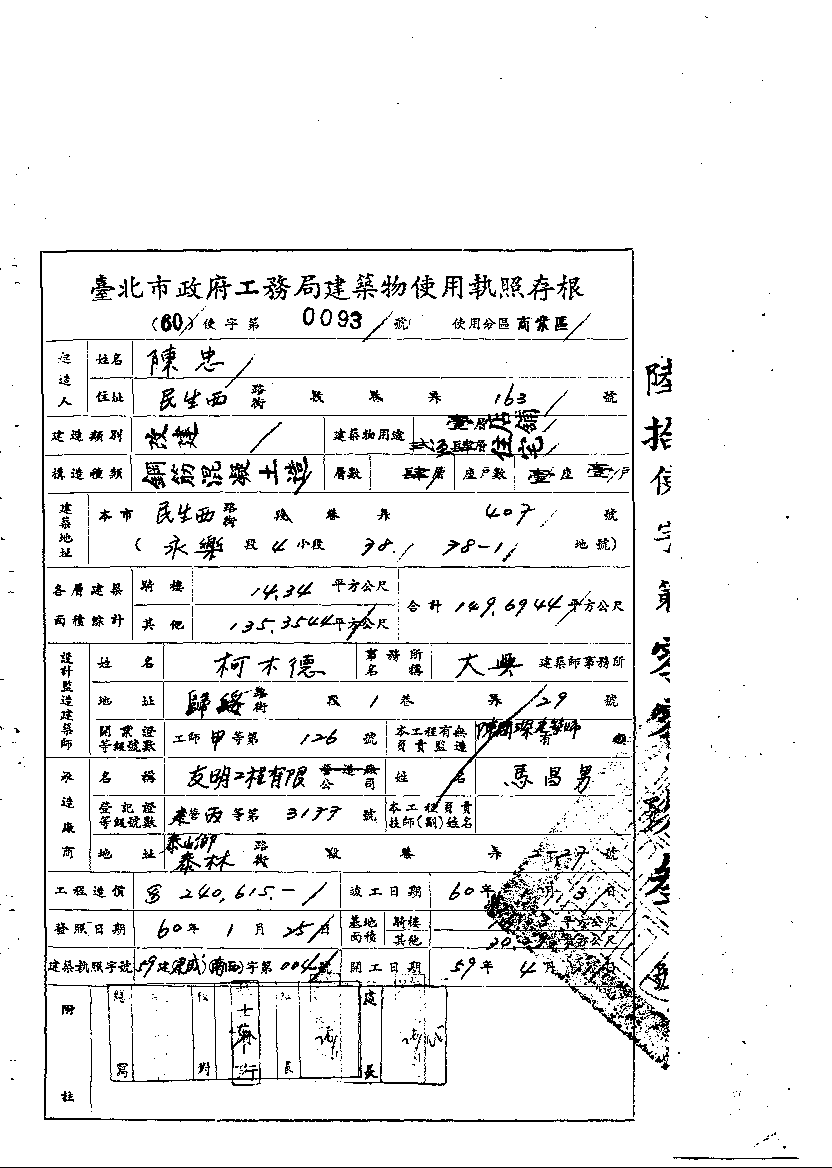 臺北市政府工務局建築物使用執照存根
(60)使字第 0093 號 使用分區 商業區
起造人 姓名 陳忠
住址 民生西 路街 段 巷 弄 163 號
建造類別 改建 建築物用途 壹層店舖 住宅
構造種類 鋼筋混凝土造 層數 肆層 座戶數 壹座 壹戶
建築地址 本市 民生西 路街 段 巷 弄 407 號
(永樂 段 4 小段 38. 38-1 地號)
各層建築面積綜計 騎樓 14.34 平方公尺 合計 149.6944 平方公尺
其他 135.3544 平方公尺
設計監造建築師 姓名 柯木德 事務所名稱 大興 建築師事務所
地址 歸綏 路街 段 1 巷 弄 29 號
開業證等級號數 工師 甲 等第 126 號 本工程有無負責監造 有
承造廠商 名稱 友明工程有限 營造廠公司 姓名 馬昌男
登記證等級號數 營丙等第 3177 號 本工程負責技師(副)姓名
地址 泰山鄉 泰林 路街 段 巷 弄 號
工程造價 240,615.- 竣工日期 60年 月 日
發照日期 60年 1 月 25 日 基地面積 騎樓 平方公尺
其他 平方公尺
建築執照字號 59建 字第 004 號 開工日期 59 年 4 月
附註
處長
陸拾使字第零零玖叁號